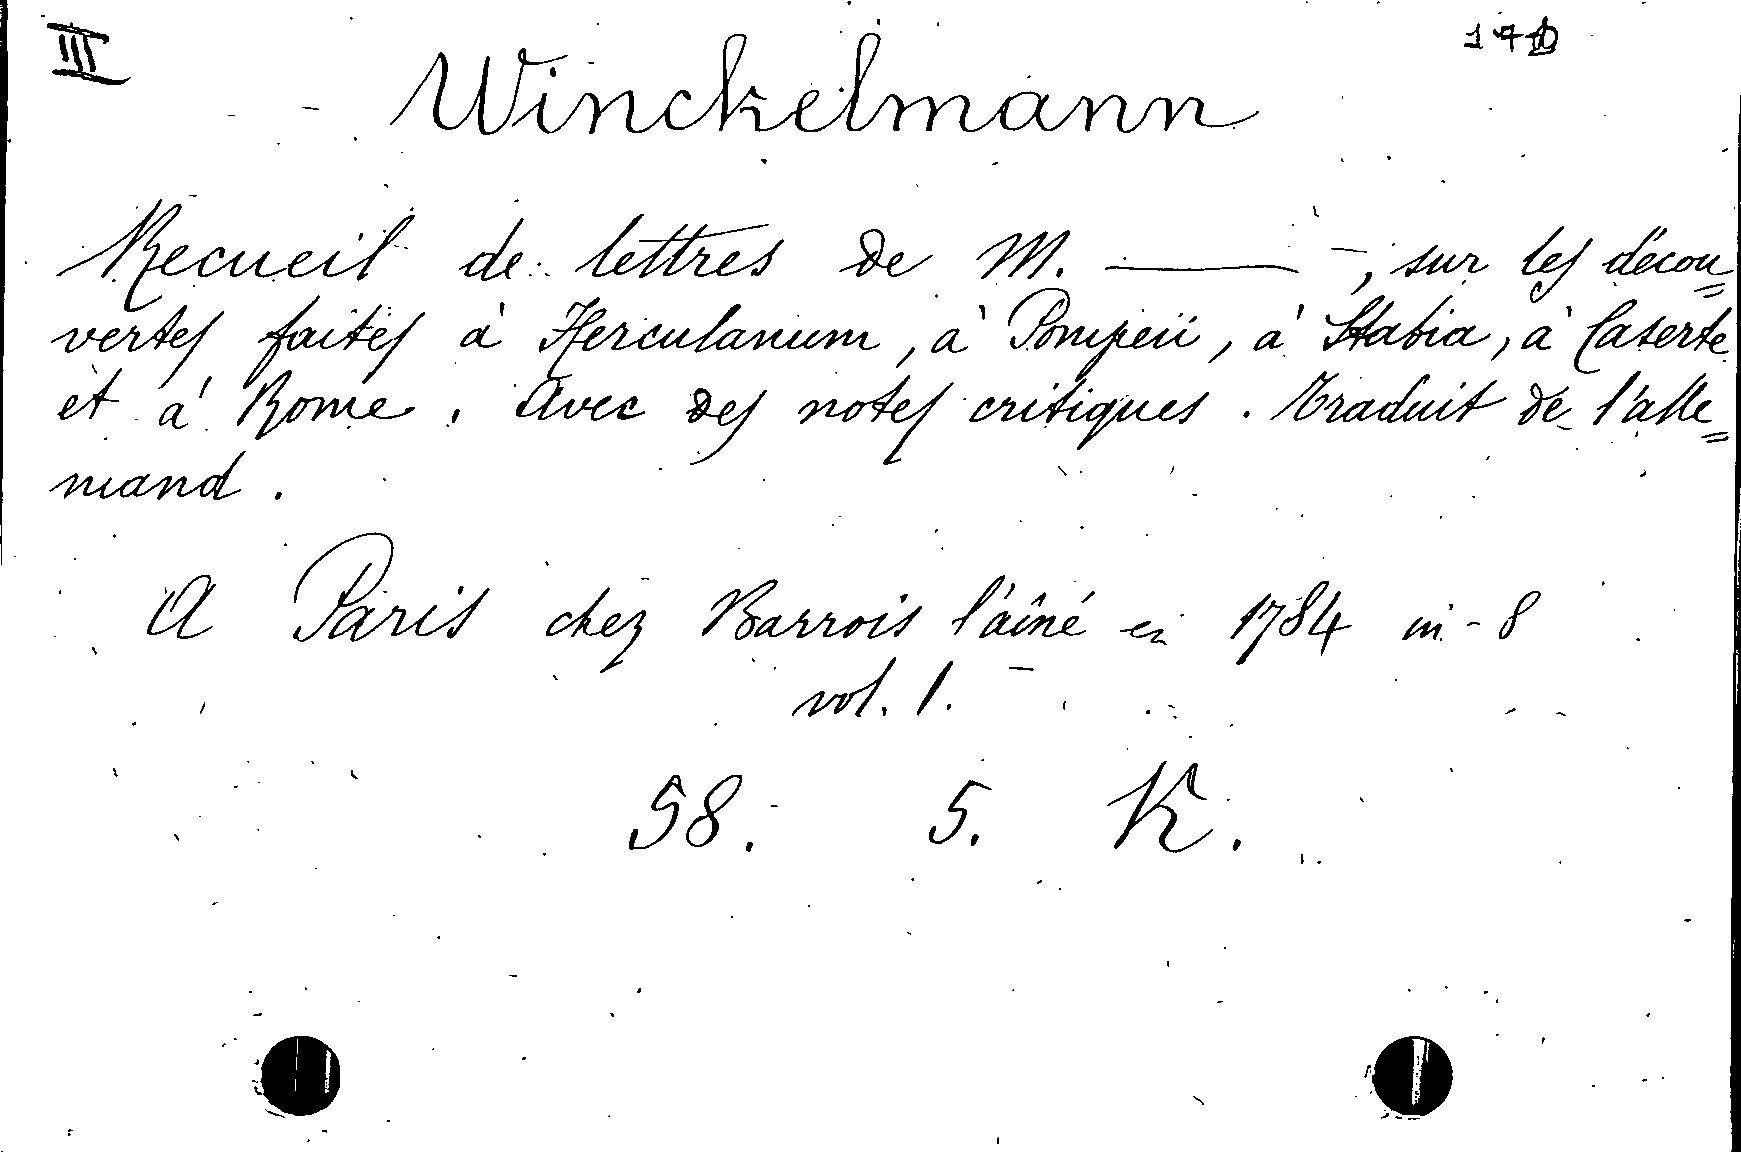 III
Winckelmann
Recueil de lettres de M. ——— , sur les décou=
vertes faites à Herculanum, à Pompeii, à Stabia, à Caserte
et à Rome. Avec des notes critiques. Traduit de l'alle=
mand.
A Paris chez Barrois l'aîné en 1784 in-8
vol. 1.
58. 5. K.